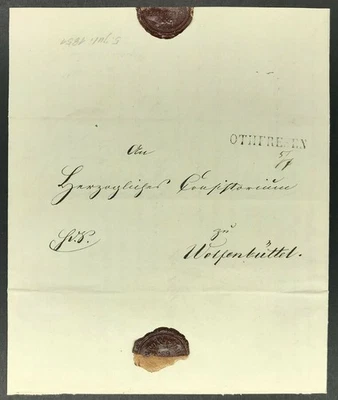 OTHFRESEN
5/7
An
Herzogliches Consistorium
zu
Wolfenbüttel.